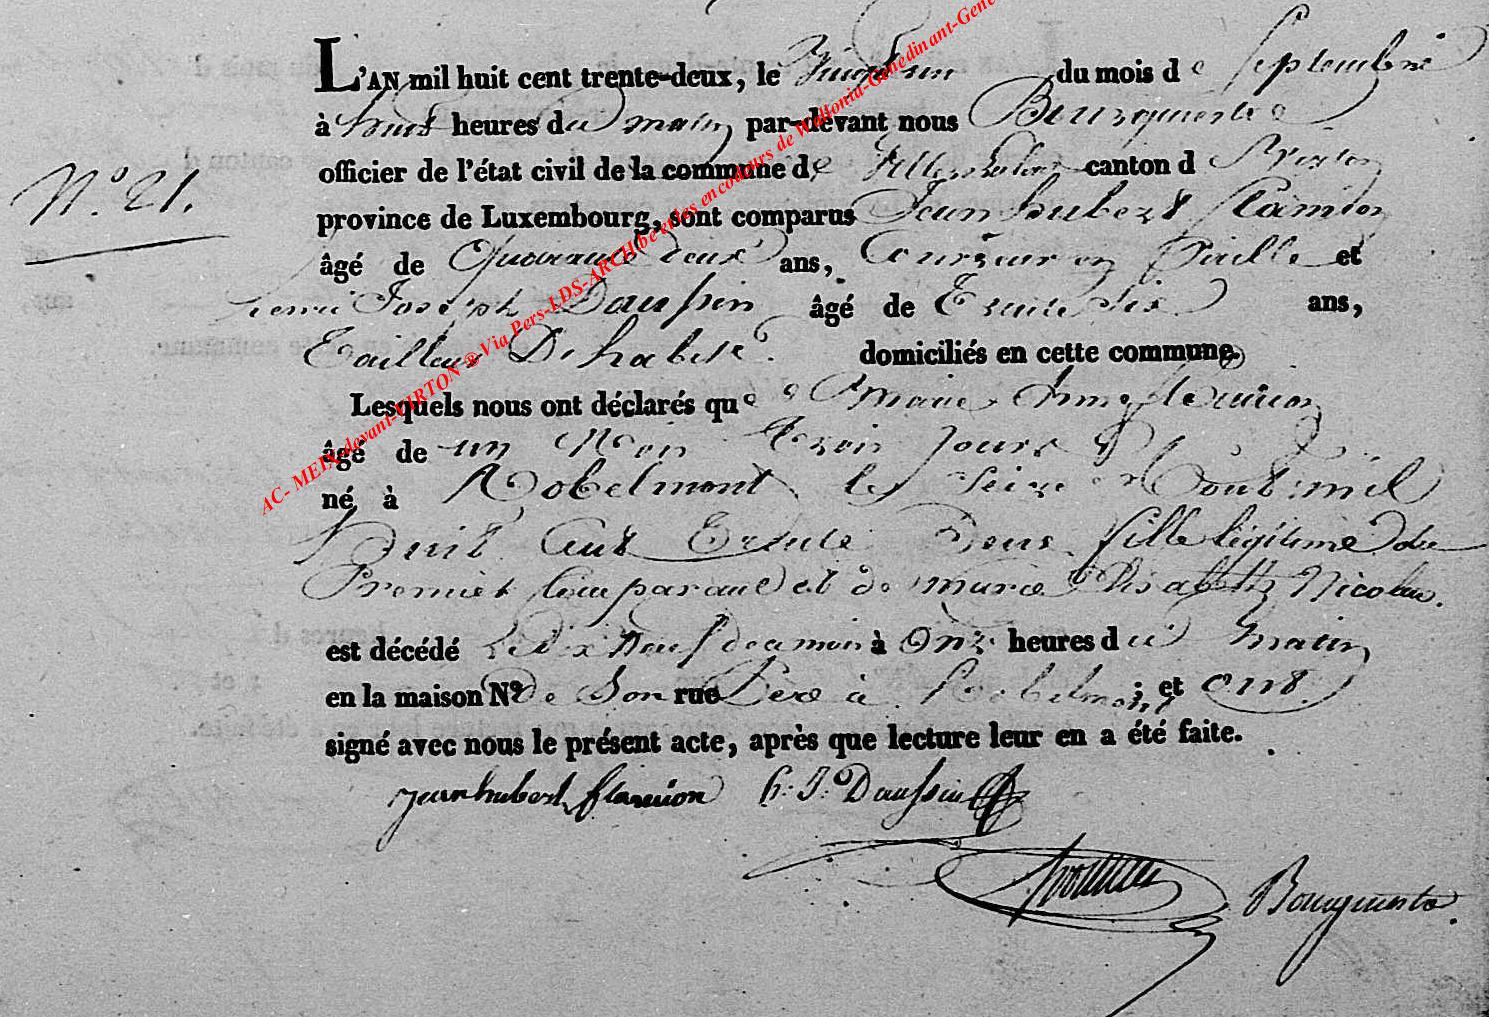 L'AN mil huit cent trente-deux, le Vingt un du mois de Septembre
à huit heures du matin par-devant nous Bourguenste
officier de l'état civil de la commune de Villers canton d Virton
N.° 21.
province de Luxembourg, sont comparus Jean hubert flamion
âgé de Quarante deux ans, Tourneur en Paille et
henri Joseph Daussin âgé de Trente Six ans,
Tailleur D'habits. domiciliés en cette commune.
Lesquels nous ont déclarés que Marie Anne flamion
âgé de un Mois Trois jours
né à Robelmont le Seize Aout mil
huit Cent Trente Deux fille légitime du
Premier Comparant et de marie Elisabeth Nicolas.
est décédé Le dix Neuf de ce mois à Onze heures du matin
en la maison N° de Son rue Pere à Robelmont; et ont
signé avec nous le présent acte, après que lecture leur en a été faite.
jean hubert flamion h: J: Daussin
AC- MEIX devant-VIRTON ® Via Pers-LDS-ARCH be et les encodeurs de Wallonia-Genedinant-Gene